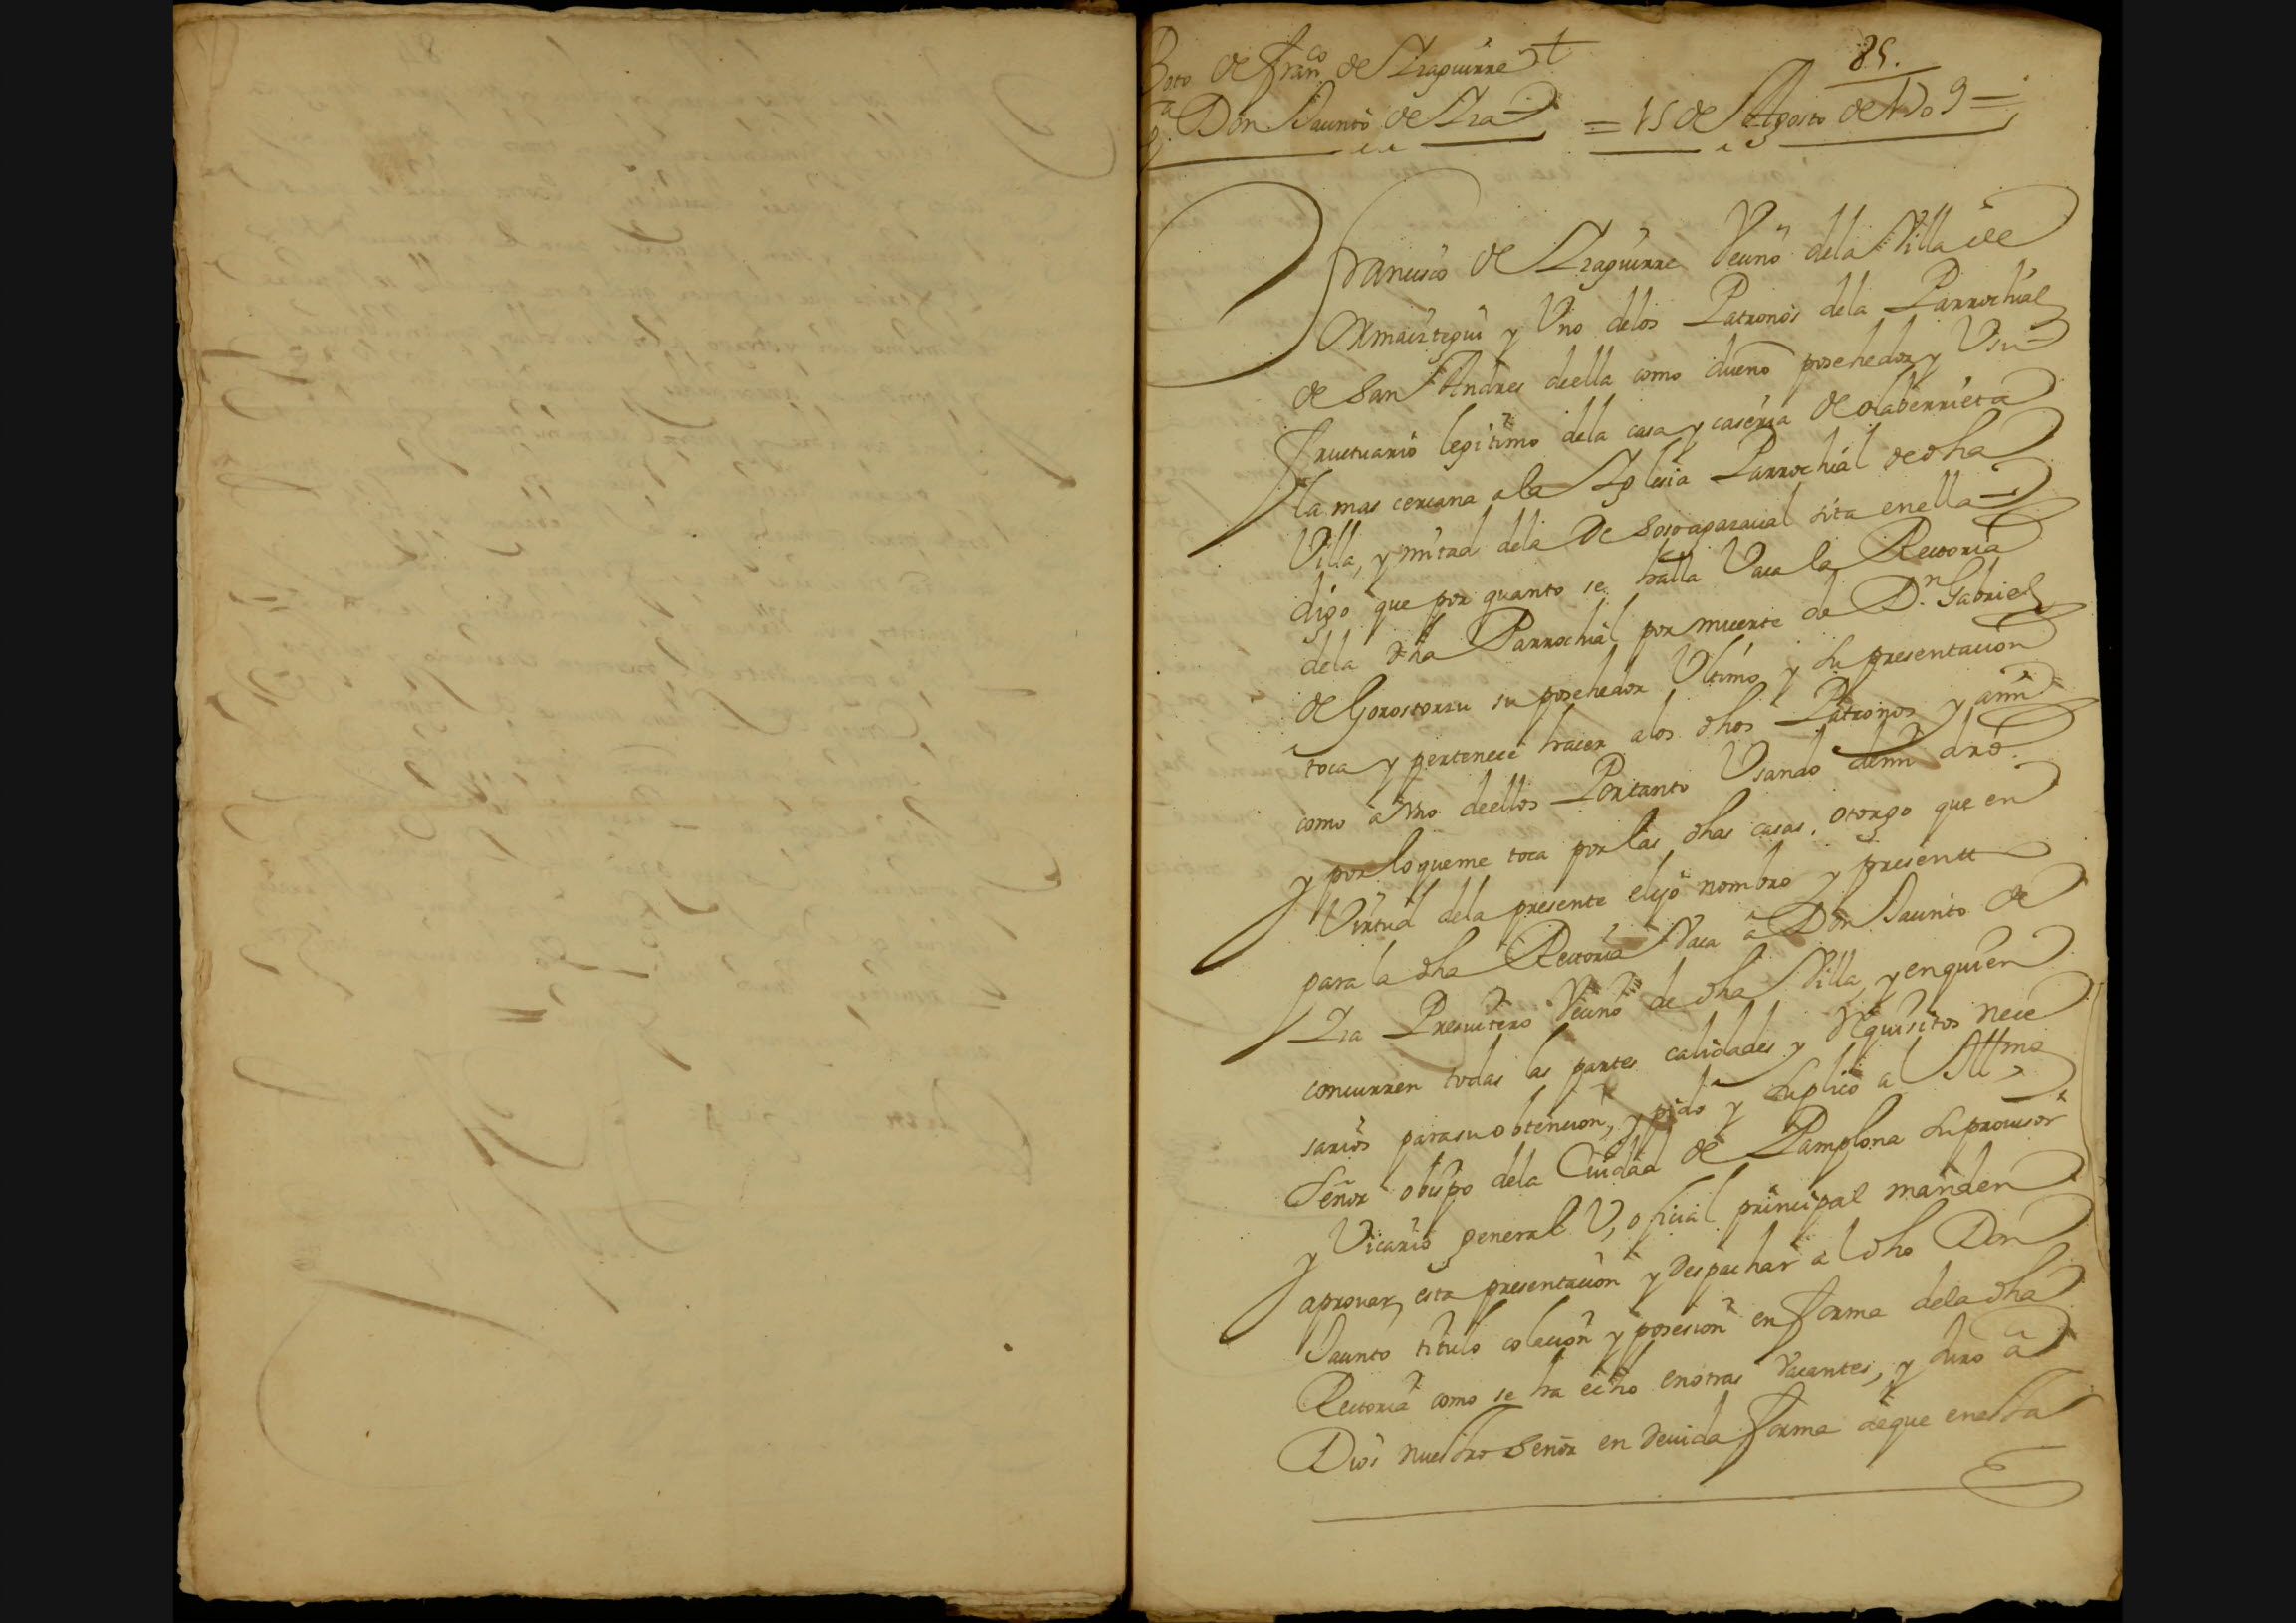 85.
Boto de Franco de Yraguirre
a Don Jacinto de Yra = 15 de Agosto de 1709 =
Francisco de Yraguirre Vecino dela Villa de
Ormaiztegui y Uno delos Patronos dela Parrochial
de San Andres deella como dueño posehedor y Usu
fructuario legitimo dela casa y caseria de olaberrieta
la mas cercana ala Yglesia Parrochial de dha
Villa, y mitad dela De sita enella
digo que por quanto se halla Vaca la Rectoria
dela dha Parrochial por muerte de Dn Gabriel
de Gorostorzu su posehedor Ultimo y su presentacion
toca y pertenece hacer alos dhos Patronos y ami
como a Uno deellos Portanto Usando demi dro
y por loqueme toca por las dhas casas, otorgo que en
Virtud dela presente elijo nombro y presento
para la dha Rectoria Vaca a Don Jacinto de
Yra Presuitero Vecino de dha Villa, y enquien
concurren todas las partes calidades y Requisitos nece
sarios parasu obtencion, y pido y suplico al Illmo
Señor obispo dela Ciudad de Pamplona su provisor
y Vicario general U, oficial principal manden
aprovar, esta presentacion y despachar al dho Don
Jacinto titulo colacion y posesion en forma dela dha
Rectoria como se ha echo enotras Vacantes, y Juro a
Dios nuestro Señor en devida forma deque enesta